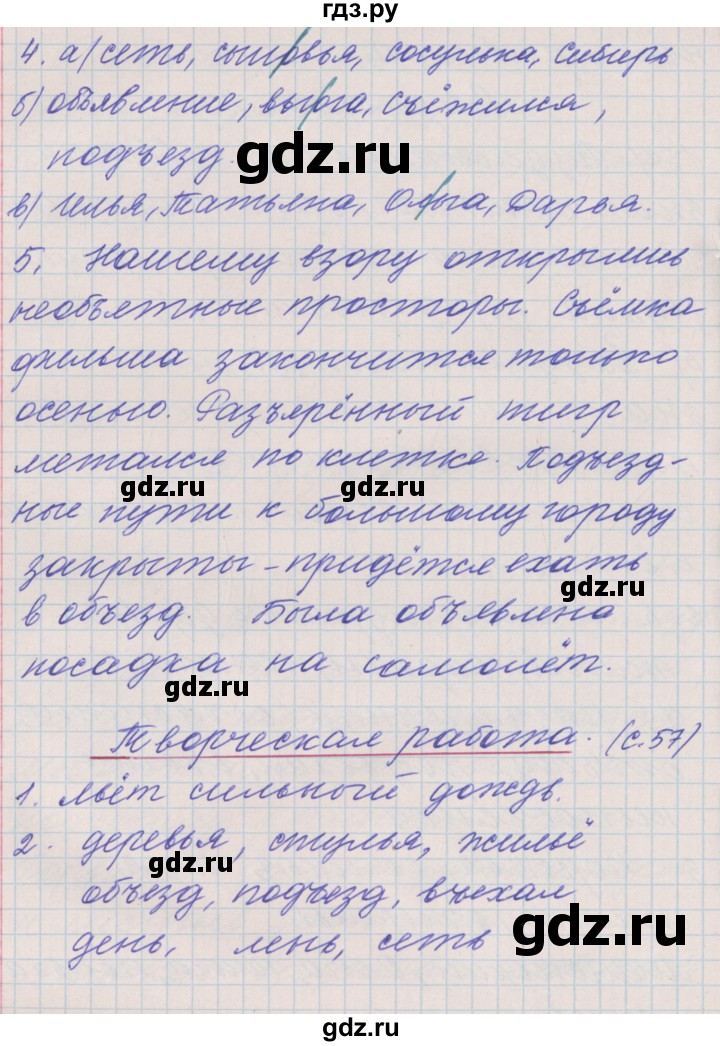 гдз.ру
4. а) сеть, сыновья, сосулька, Сибирь
б) объявление, вьюга, съёжился,
подъезд.
gdz.ru
в) Илья, Татьяна, Ольга, Дарья.
5. Нашему взору открылись
необъятные просторы. Съёмка
фильма закончится только
осенью. Разъярённый тигр
метался по клетке. Подъезд-
gdz.ru gdz.ru
ные пути к большому городу
закрыты - придётся ехать
gdz.ru
в объезд. Была объявлена
посадка на самолёт.
gdz.ru
Творческая работа. (с. 57)
1. Льёт сильный дождь.
2. деревья, стулья, жильё
gdz.ru
объезд, подъезд, въехал
день, лень, сеть
gdz.ru
gdz.ru